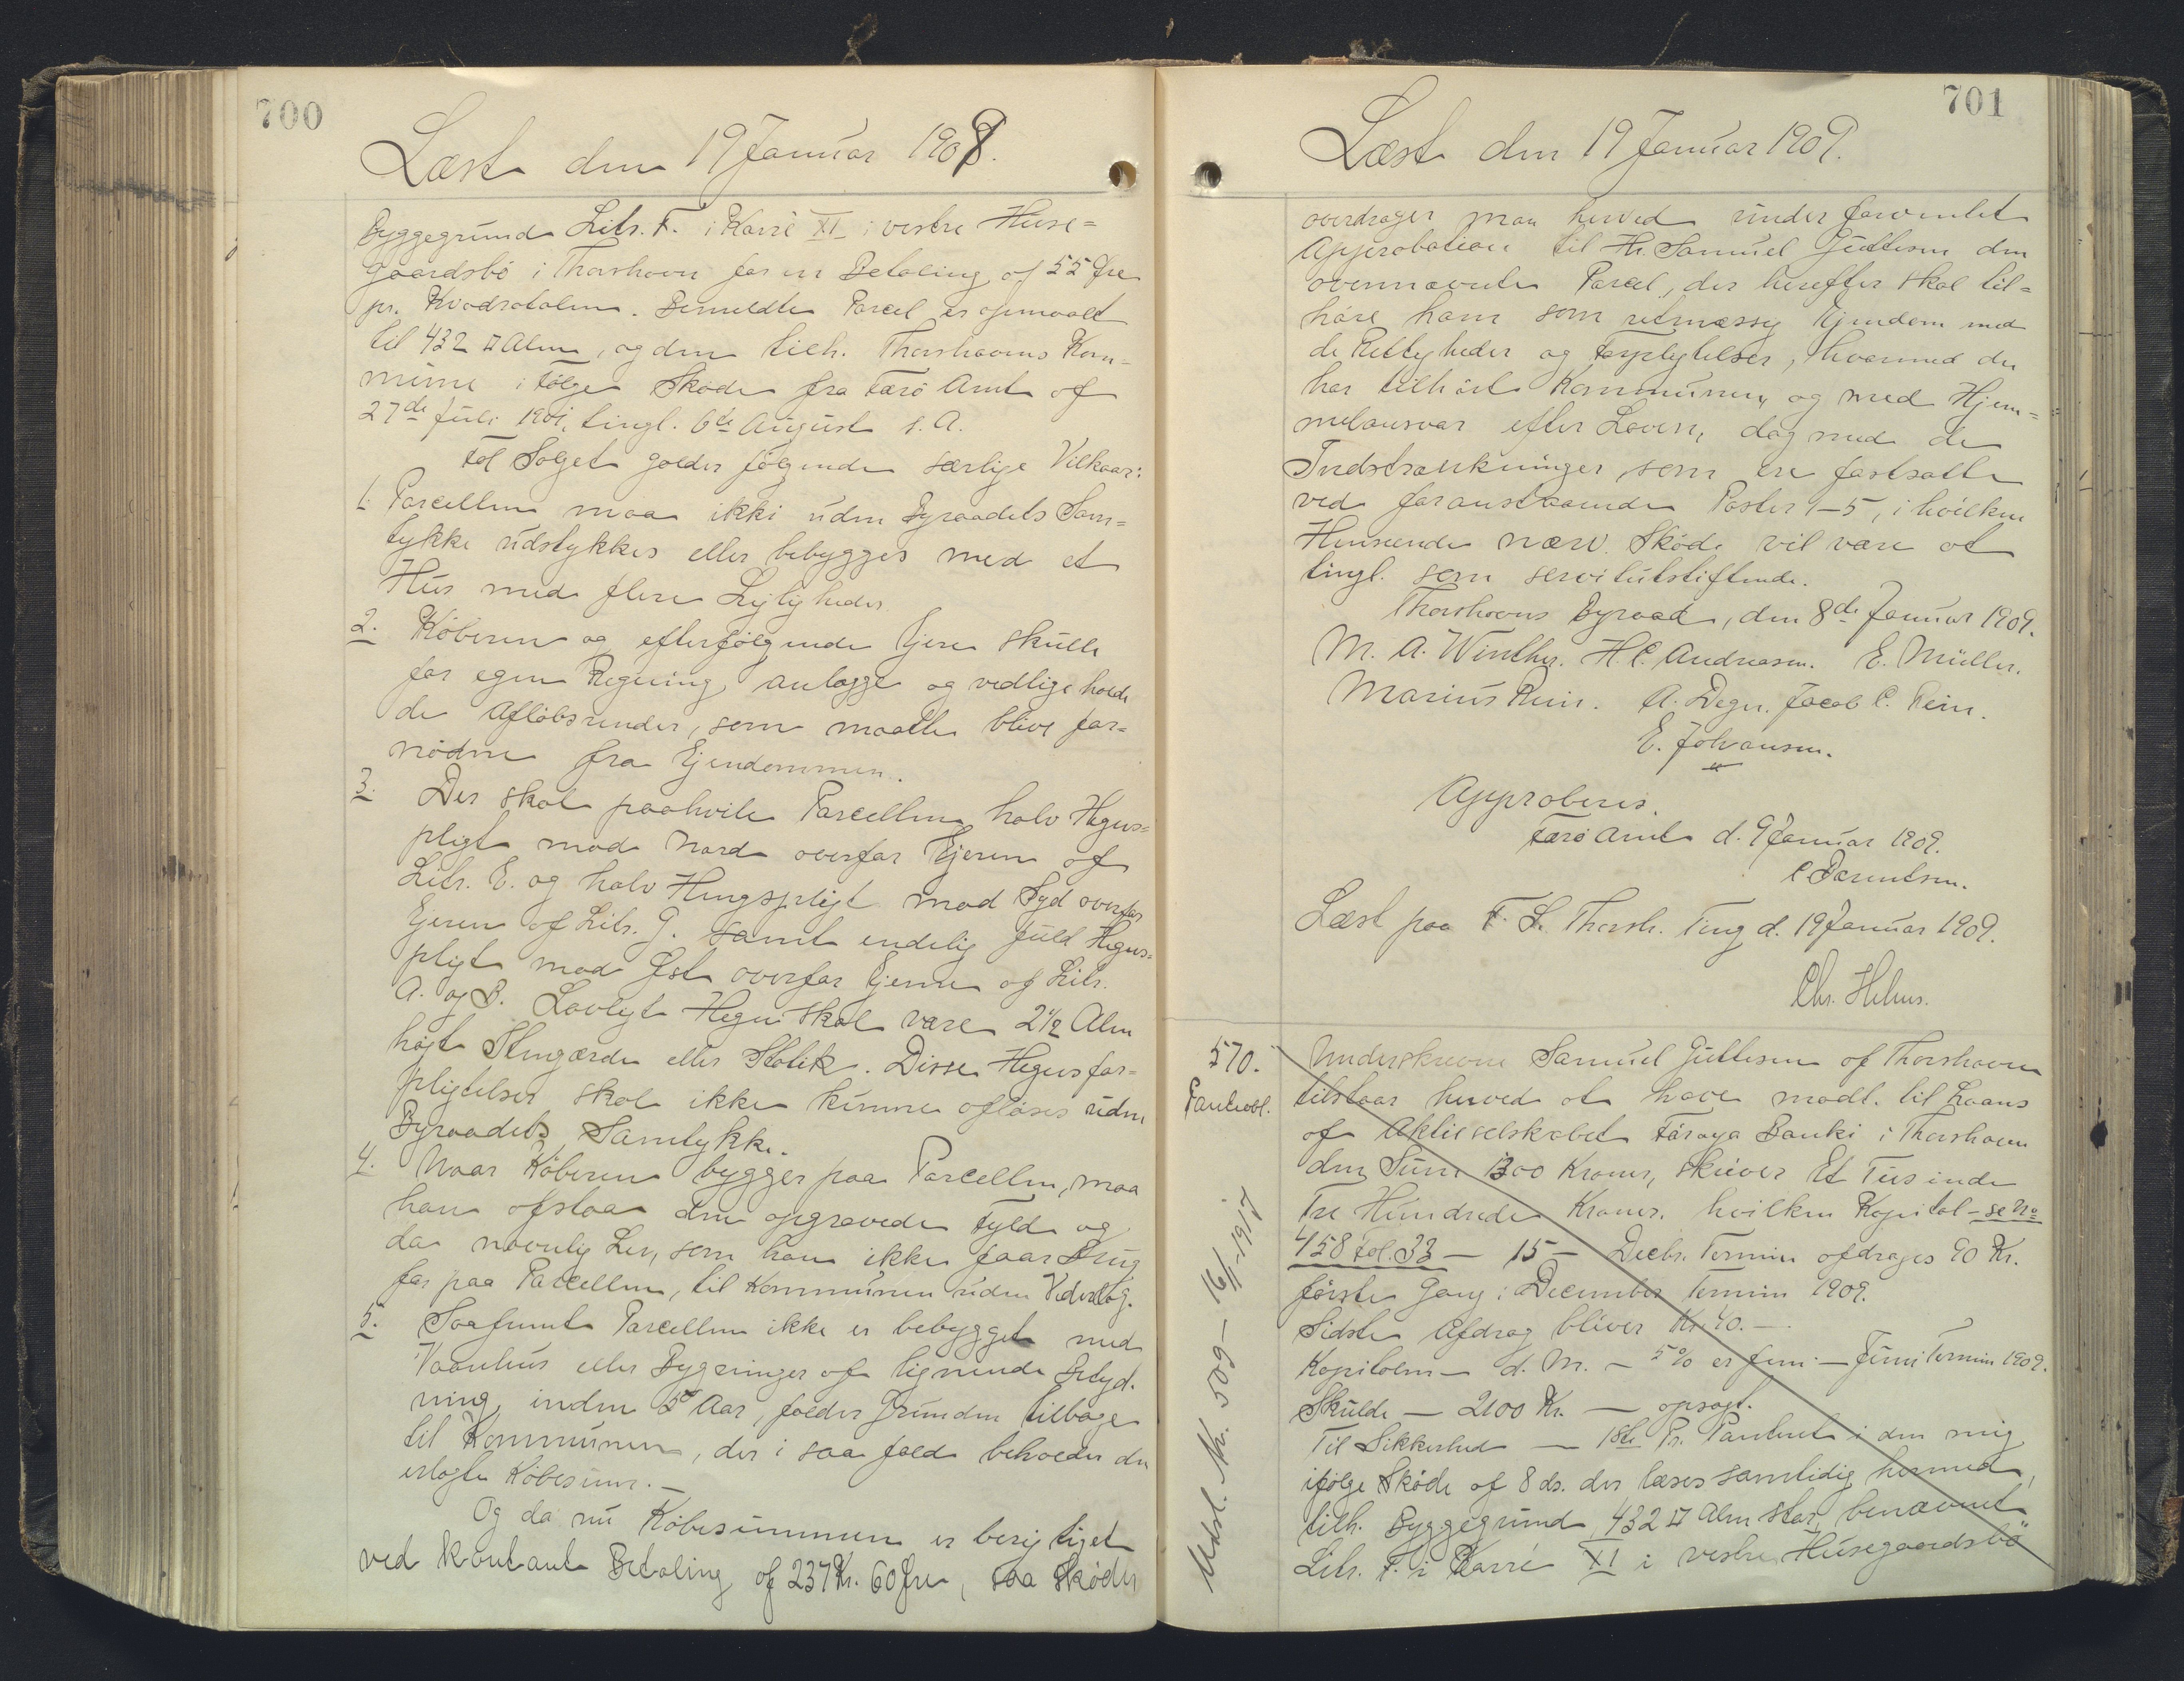 700
Læst den 19 Januar 1909.
Byggegrund Litr. F. i Karré XI i vestre Huse=
gaardsbø i Thorshavn for en Betaling af 55 Øre
pr. Kvadratalen. Bemeldte Parcel er opmaalt
til 432 □ Alen, og den tilh. Thorshavns Kom-
mune i Følge Skøde fra Færø Amt af
27de Juli 1901, tingl. 6te August s. A.
For Salget gælder følgende særlige Vilkaar:
1. Parcellen maa ikke uden Byraadets Sam=
tykke udstykkes eller bebygges med et
Hus med flere Lejligheder.
2. Køberen og efterfølgende Ejere skulle
for egen Regning anlægge og vedligeholde
de Afløbsrender, som maatte blive for=
nødne fra Ejendommen.
3. Der skal paahvile Parcellen halv Hegns=
pligt mod Nord overfor Ejeren af
Litr. E. og halv Hegnspligt mod Syd overfor
Ejeren af Litr. G. samt endelig fuld Hegns=
pligt mod Øst overfor Ejerne af Litr.
A. og B. Lovligt Hegn skal være 2 1/2 Alen
højt Stengærde eller Stakit. Disse Hegnsfor=
pligtelser skal ikke kunne afløses uden
Byraadets Samtykke.
4. Naar Køberen bygger paa Parcellen, maa
han afstaa den opgravede Fyld og
da navnlig Ler, som han ikke faar Brug
for paa Parcellen, til Kommunen uden Vederlag.
5. Saafremt Parcellen ikke er bebygget med
Vaanhus eller Bygninger af lignende Betyd-
ning inden 5 Aar, falder Grunden tilbage
til Kommunen, der i saa fald beholder den
erlagte Købesum. —
Og da nu Købesummen er berigtiget
ved kontant Betaling af 237 Kr. 60 Øre, saa skøder
701
Læst den 19 Januar 1909.
overdrager man herved under forventet
Approbation til Hr. Samuel Guttesen den
ovennævnte Parcel, der herefter skal til=
høre ham som retmæssig Ejendom med
de Rettigheder og Forpligtelser, hvormed den
har tilhørt Kommunen, og med Hjem=
melansvar efter Loven, dog med de
Indskrænkninger, som ere fastsatte
ved foranstaaende Poster 1–5, i hvilken
Henseende nærv. Skøde vil være at
tingl. som servitutstiftende.
Thorshavns Byraad, den 8de Januar 1909.
M. A. Winther. H. C. Andreasen. E. Müller.
Marius Rein. A. Degn. Jacob C. Rein.
E. Johansen.
Approberes.
Færø Amt d. 9 Januar 1909.
C Bærentsen.
Læst paa F. S. Thorsh. Ting d. 19 Januar 1909.
Chr. Helms.
570.
Panteobl.
Underskrevne Samuel Guttesen af Thorshavn
tilstaar herved at have modt. til Laans
af Aktieselskabet Føroya Banki i Thorshavn
den Sum 1300 Kroner, skriver Et Tusinde
Tre Hundrede Kroner. hvilken Kapital – se No
458 fol. 33 — 15 — Decbr. Termin afdrages 90 Kr.
første Gang i December Termin 1909.
Sidste Afdrag bliver Kr. 40. —
Kapitalen — d. M. — 5% er fem — Juni Termin 1909.
Skulde — 2100 Kr. — opsagt.
Til Sikkerhed — 1ste Pr. Panteret i den mig
ifølge Skøde af 8 ds. der læses samtidig hermed,
tilh. Byggegrund, 432 □ Alen stor, benævnt
Litr. F. i Karré XI i vestre Husegaardsbø
Udsl. Nr. 509 – 16/1-1917